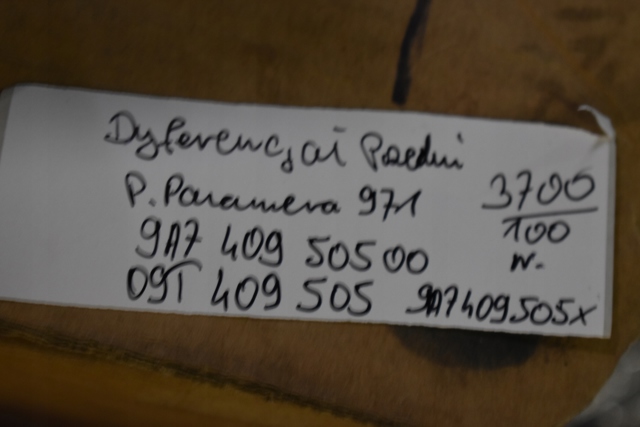 Dyferencjał Przedni
P. Panamera 971
3700
100
9A7 409 505 00
W.
09T 409 505
9A7409505X